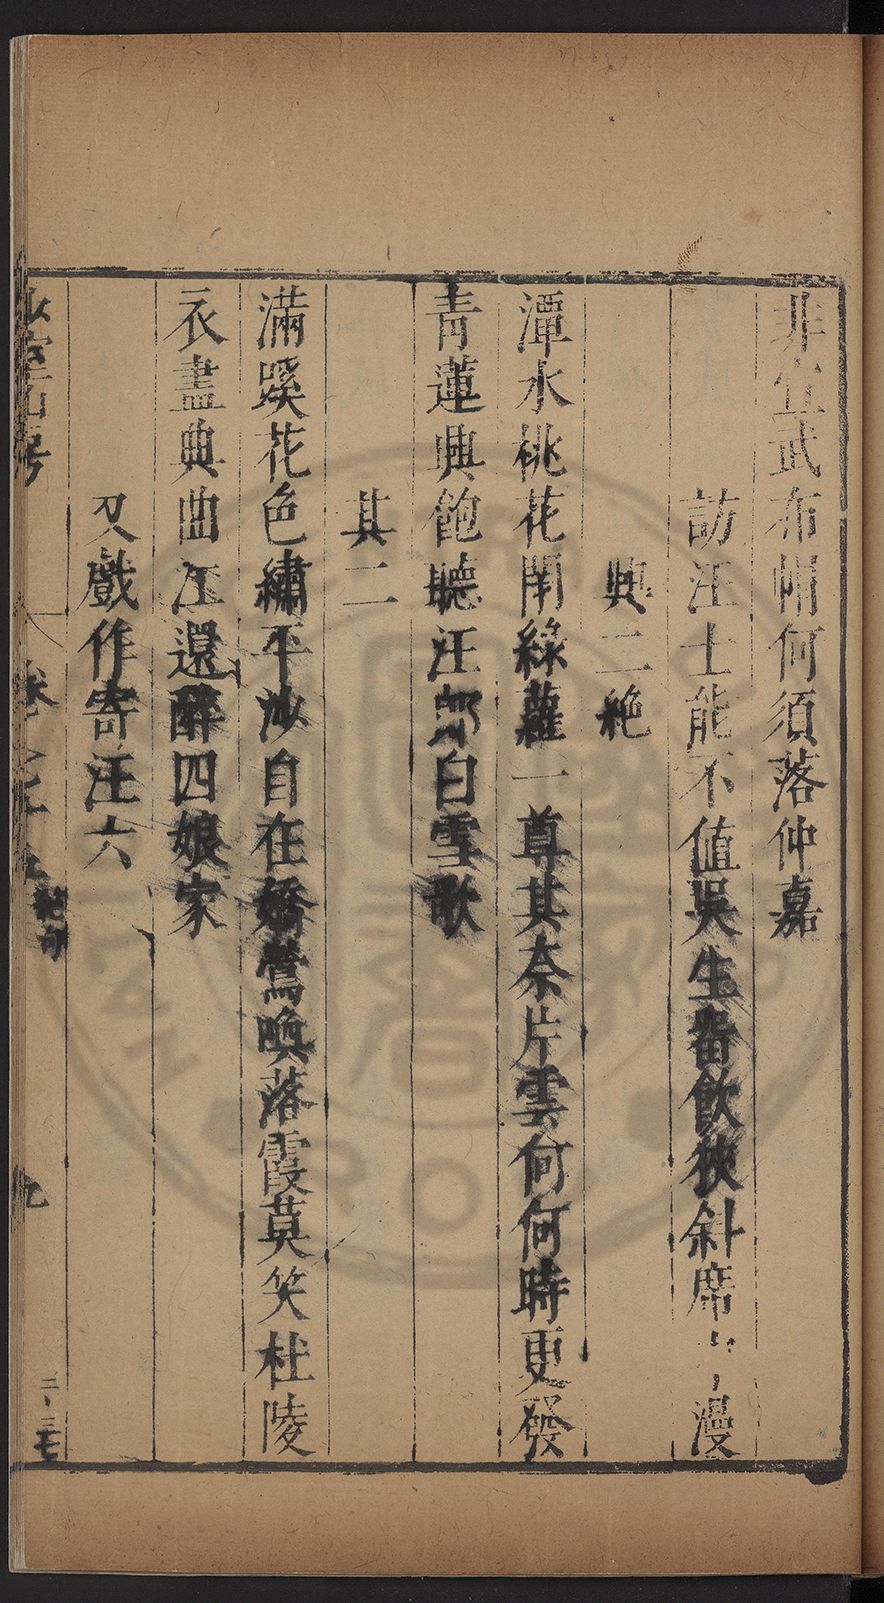 非宣武布帽何須落仲嘉
訪汪士能不值吳生畱飲狹斜席漫
興二絶
潭水桃花開綠蘿一尊其奈片雲何何時更發
青蓮興飽聽汪郎白雪歌
其二
滿蹊花色繡平沙自在嬌鶯喚落霞莫笑杜陵
衣盡典曲江還醉四娘家
又戲作寄汪六
少室山房 卷之七十五 絶句 九